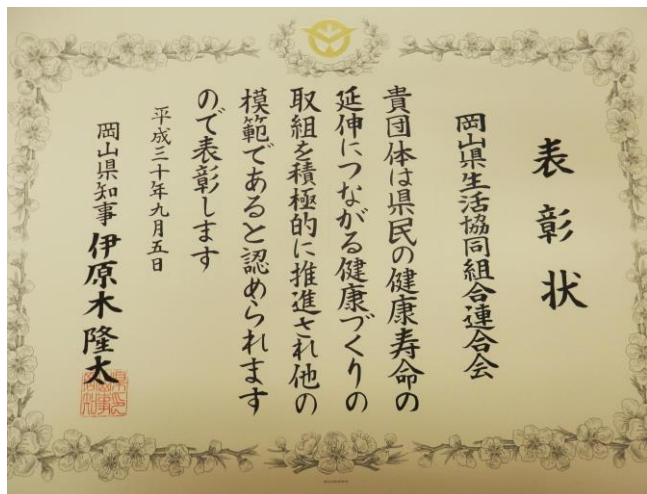 表彰状
岡山県生活協同組合連合会
貴団体は県民の健康寿命の
延伸につながる健康づくりの
取組を積極的に推進され他の
模範であると認められます
ので表彰します
平成三十年九月五日
岡山県知事 伊原木隆太